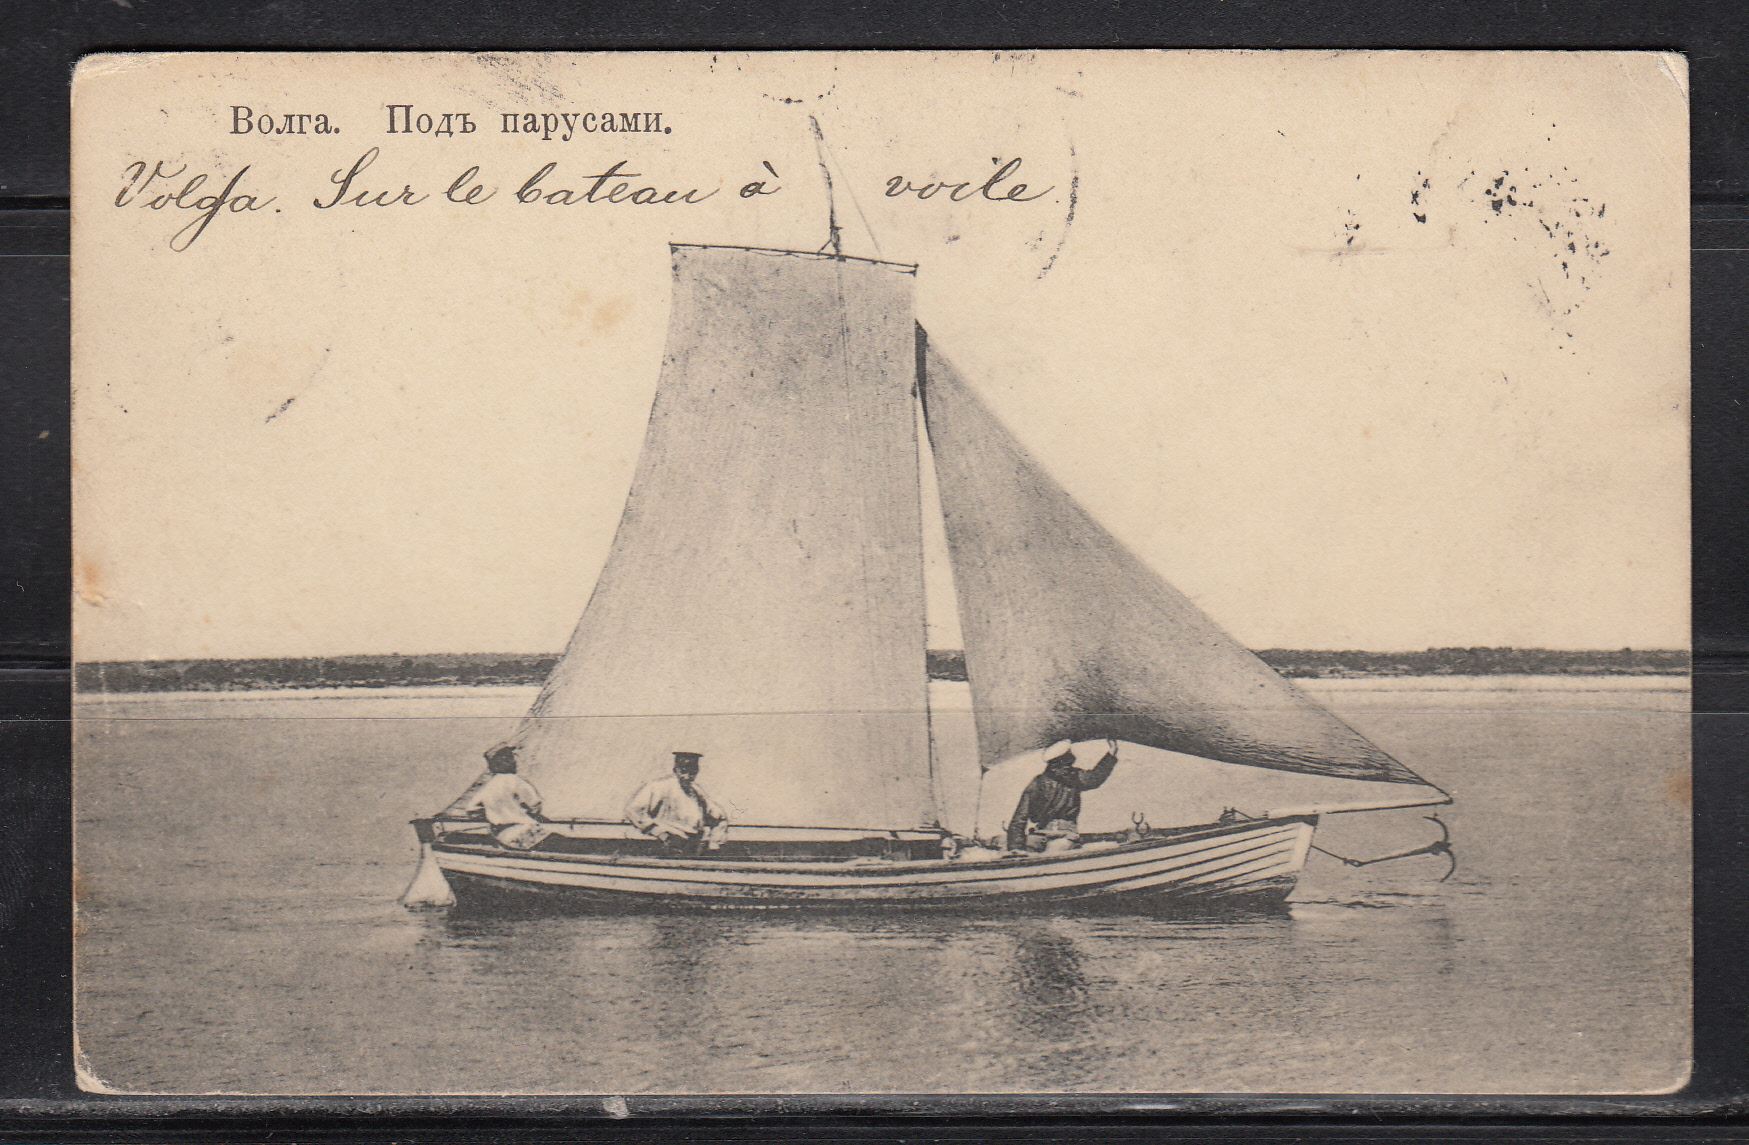 Волга. Подъ парусами.
Volga. Sur le bateau à voile.